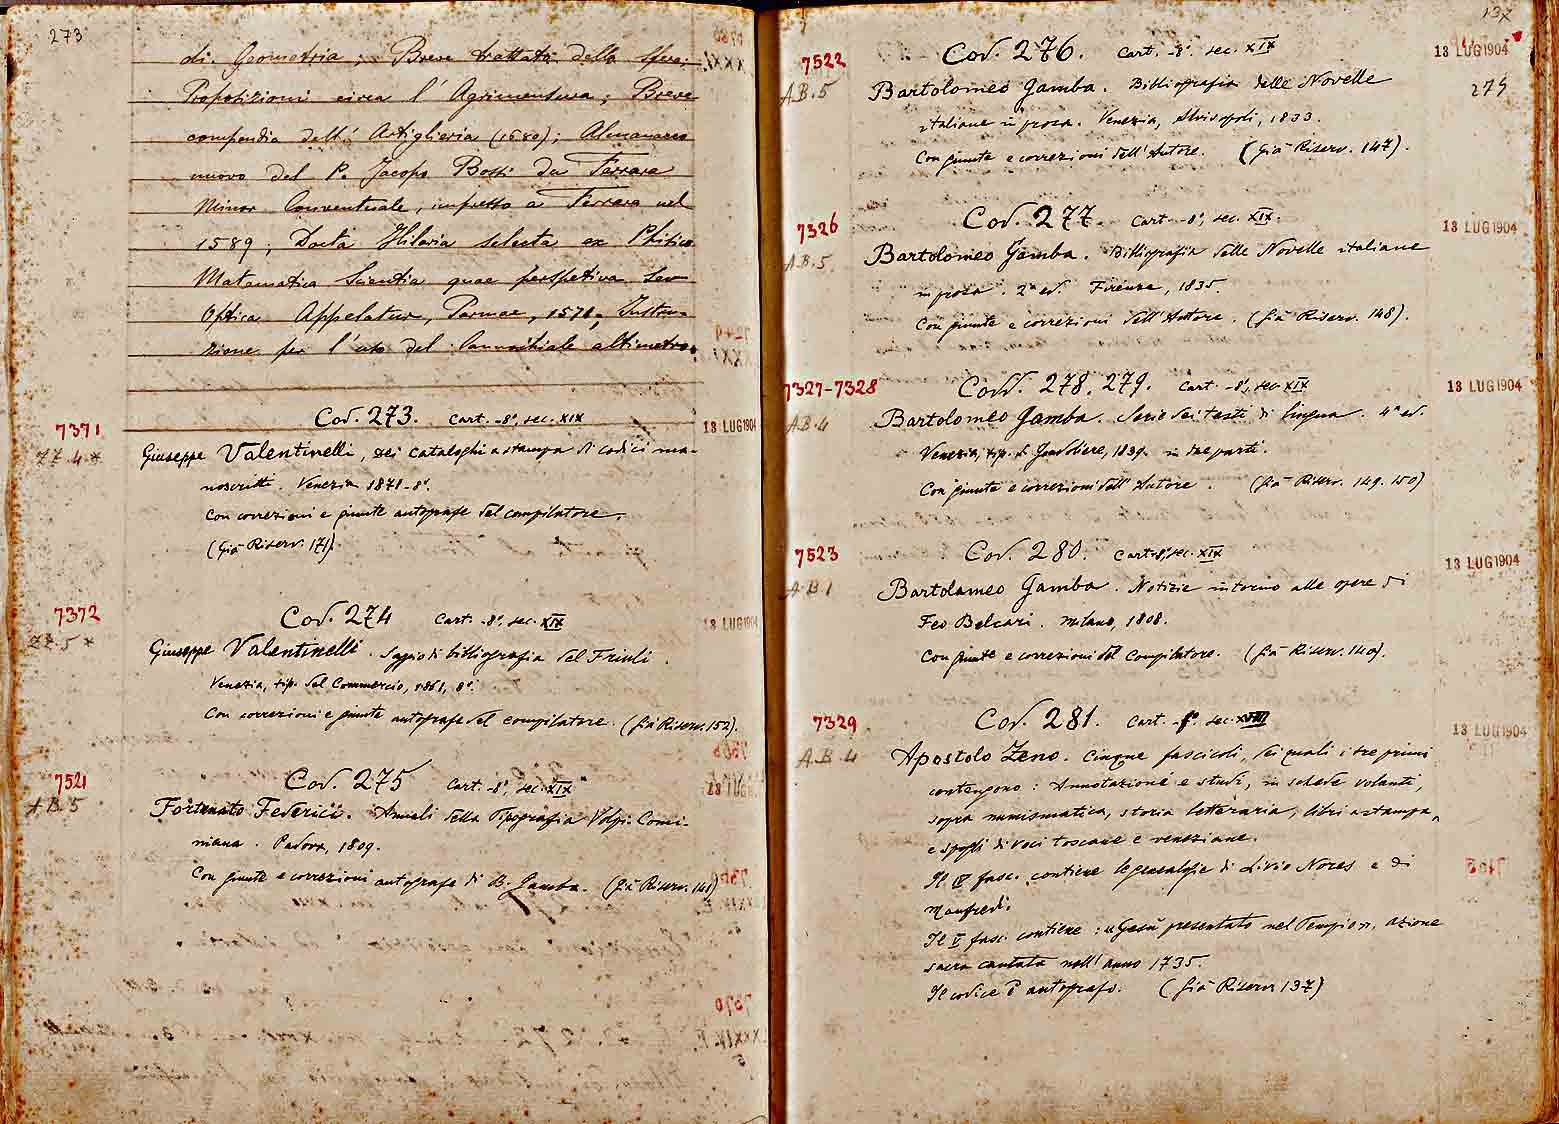 273
di Geometria; Breve trattato della sfera;
Proposizioni circa l'Agrimensura; Breve
compendio dell' Artiglieria (1680); Almanacco
nuovo del P. Jacopo Bosi da Ferrara
Minor Conventuale, impresso a Ferrara nel
1589; Docta Hilaria selecta ex Phisico
Matematica Scientia quae perspetiva seu
Optica Appelatur, Parmae, 1571; Istru-
zione per l'uso del Cannochiale altimetro.
7371
77.4.*
Cod. 273. Cart. -8°, sec. XIX
13 LUG 1904
Giuseppe Valentinelli, Dei cataloghi a stampa di codici ma-
noscritti. Venezia 1871-8°.
Con correzioni e giunte autografe del compilatore.
(Già Riserv. 171).
7372
77.5*
Cod. 274 Cart. -8°, sec. XIX
13 LUG 1904
Giuseppe Valentinelli. Saggio di bibliografia del Friuli.
Venezia, tip. del Commercio, 1861, 8°.
Con correzioni e giunte autografe del compilatore. (Già Riserv. 152).
7521
A.B.5
Cod. 275 Cart. -8°, sec. XIX
Fortunato Federici. Annali della Tipografia Volpi-Comi-
niana. Padova, 1809.
Con giunte e correzioni autografe di B. Gamba. (Già Riserv. 141)
137
7522
A.B.5
Cod. 276. Cart. -8°. sec. XIX
13 LUG 1904
275
Bartolomeo Gamba. Bibliografia delle Novelle
italiane in prosa. Venezia, Alvisopoli, 1833.
Con giunte e correzioni dell'Autore. (Già Riserv. 147).
7326
A.B.5
Cod. 277. Cart. -8°, sec. XIX.
13 LUG 1904
Bartolomeo Gamba. Bibliografia delle Novelle italiane
in prosa. 2ª ed. Firenze, 1835.
Con giunte e correzioni dell'Autore. (Già Riserv. 148).
7327-7328
A.B.4
Codd. 278. 279. Cart. -8°, sec. XIX
13 LUG 1904
Bartolomeo Gamba. Serie dei testi di lingua. 4ª ed.
Venezia, tip. del Gondoliere, 1839. in due parti.
Con giunte e correzioni dell'Autore. (Già Riserv. 149. 150)
7523
A.B 1
Cod. 280. Cart. -8°, sec. XIX
13 LUG 1904
Bartolomeo Gamba. Notizie intorno alle opere di
Feo Belcari. Milano, 1808.
Con giunte e correzioni del compilatore. (Già Riserv. 140).
7329
A.B.4
Cod. 281. Cart. -f°. sec. XVIII
13 LUG 1904
Apostolo Zeno. Cinque fascicoli, dei quali i tre primi
contengono: Annotazioni e studi, in schede volanti,
sopra numismatica, storia letteraria, libri a stampa,
e spogli di voci toscane e veneziane.
Il IV fasc. contiene le genealogie di Livio Nores e di
Manfredi.
Il V fasc. contiene: "Gesù presentato nel Tempio", azione
sacra cantata nell'anno 1735.
Il codice è autografo. (Già Riserv. 137)